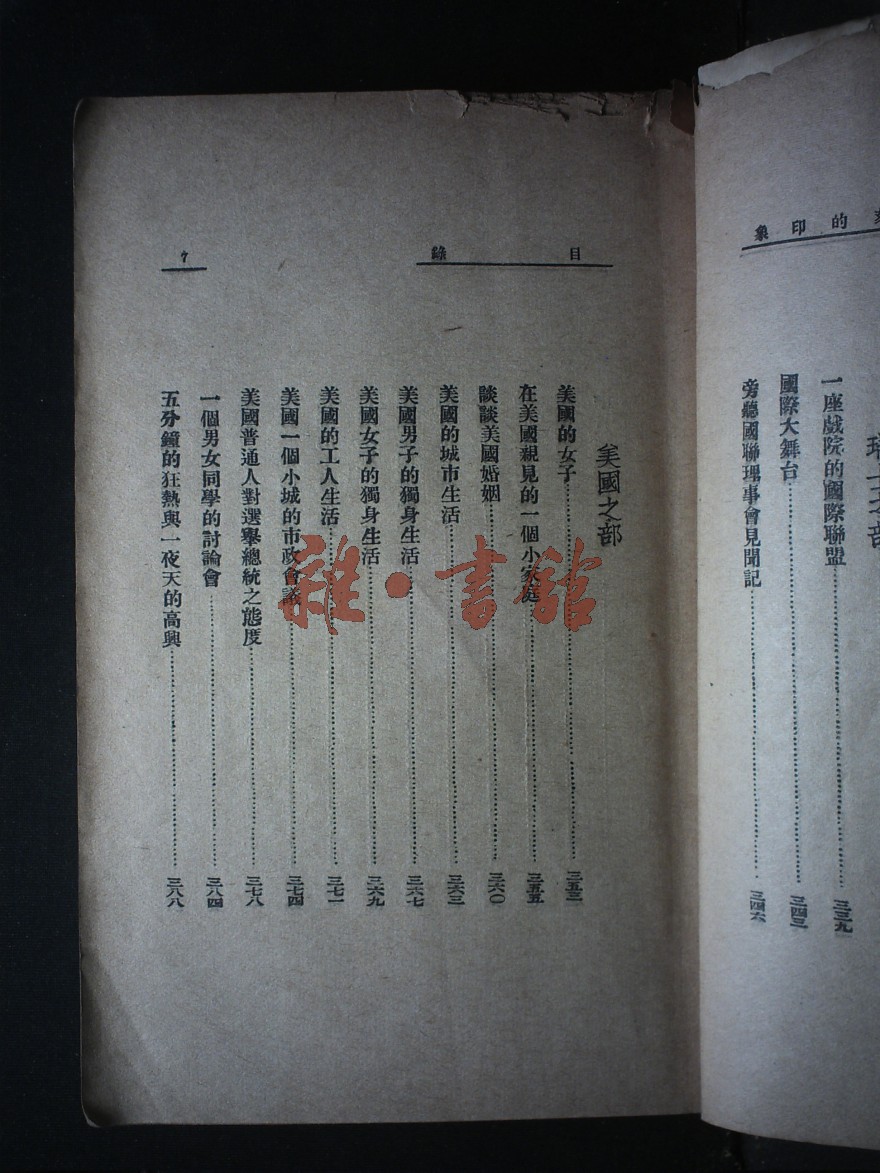 的印象
瑞士之部
一座戲院的國際聯盟……三三九
國際大舞台……三四三
旁聽國聯理事會見聞記……三四六
目錄
7
美國之部
美國的女子……三五三
在美國親見的一個小家庭……三五五
談談美國婚姻……三六〇
美國的城市生活……三六三
美國男子的獨身生活……三六七
美國女子的獨身生活……三六九
美國的工人生活……三七一
美國一個小城的市政會議……三七四
美國普通人對選舉總統之態度……三七八
一個男女同學的討論會……三八四
五分鐘的狂熱與一夜天的高興……三八八
雜·書館